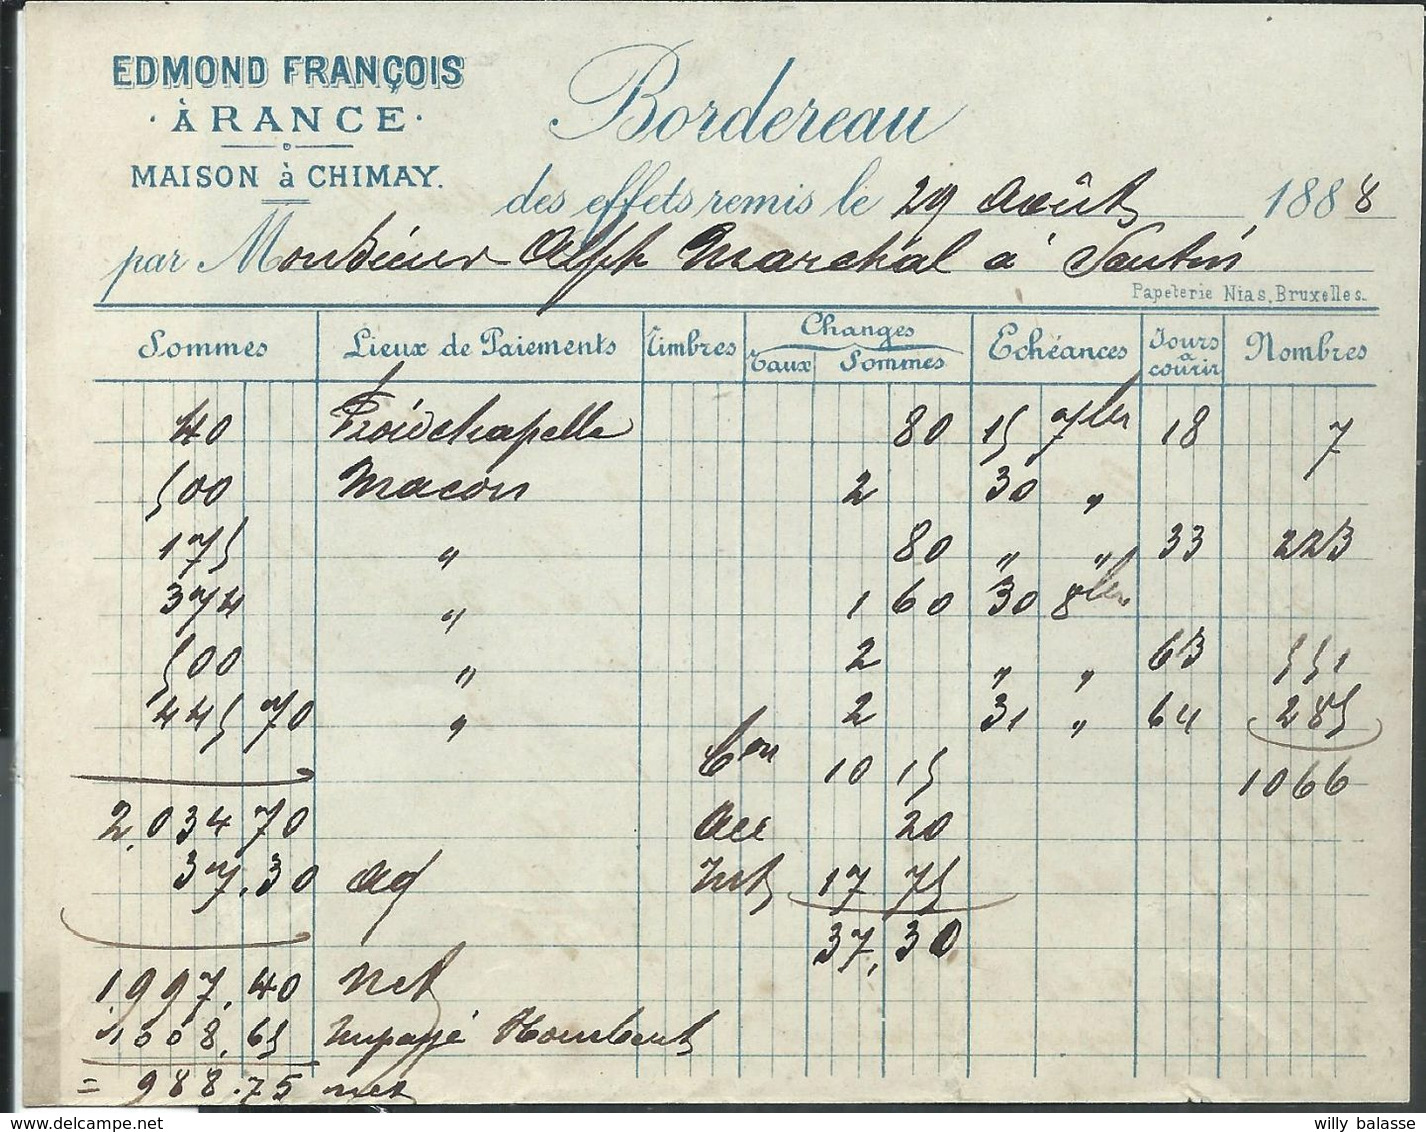 EDMOND FRANÇOIS
· À RANCE ·
MAISON à CHIMAY.
Bordereau
des effets remis le 29 Août 1888
par Monsieur Alph Marchal à Sautin
Papeterie Nias, Bruxelles.
Sommes Lieux de Paiements Timbres Changes Echéances Jours à courir Nombres
Taux Sommes
40 Froidchapelle 80 15 7bre 18 7
500 Macon 2 30 "
175 " 80 " " 33 223
374 " 1 60 30 8bre
500 " 2 " " 63 551
445 70 " 2 31 " 64 285
Con 10 15 1066
2,034 70 Acc 20
37.30 Ag Int 17 75
37,30
1997,40 net
1008,65 impayé Hombert
= 988.75 net
willy balasse